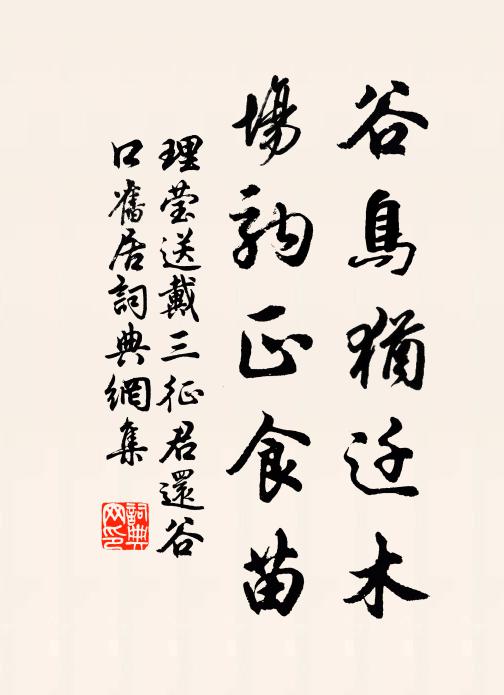 谷鳥猶迁木
場駒正食苗
理莹送戴三征君還谷
口舊居詞典網集
詞典网印